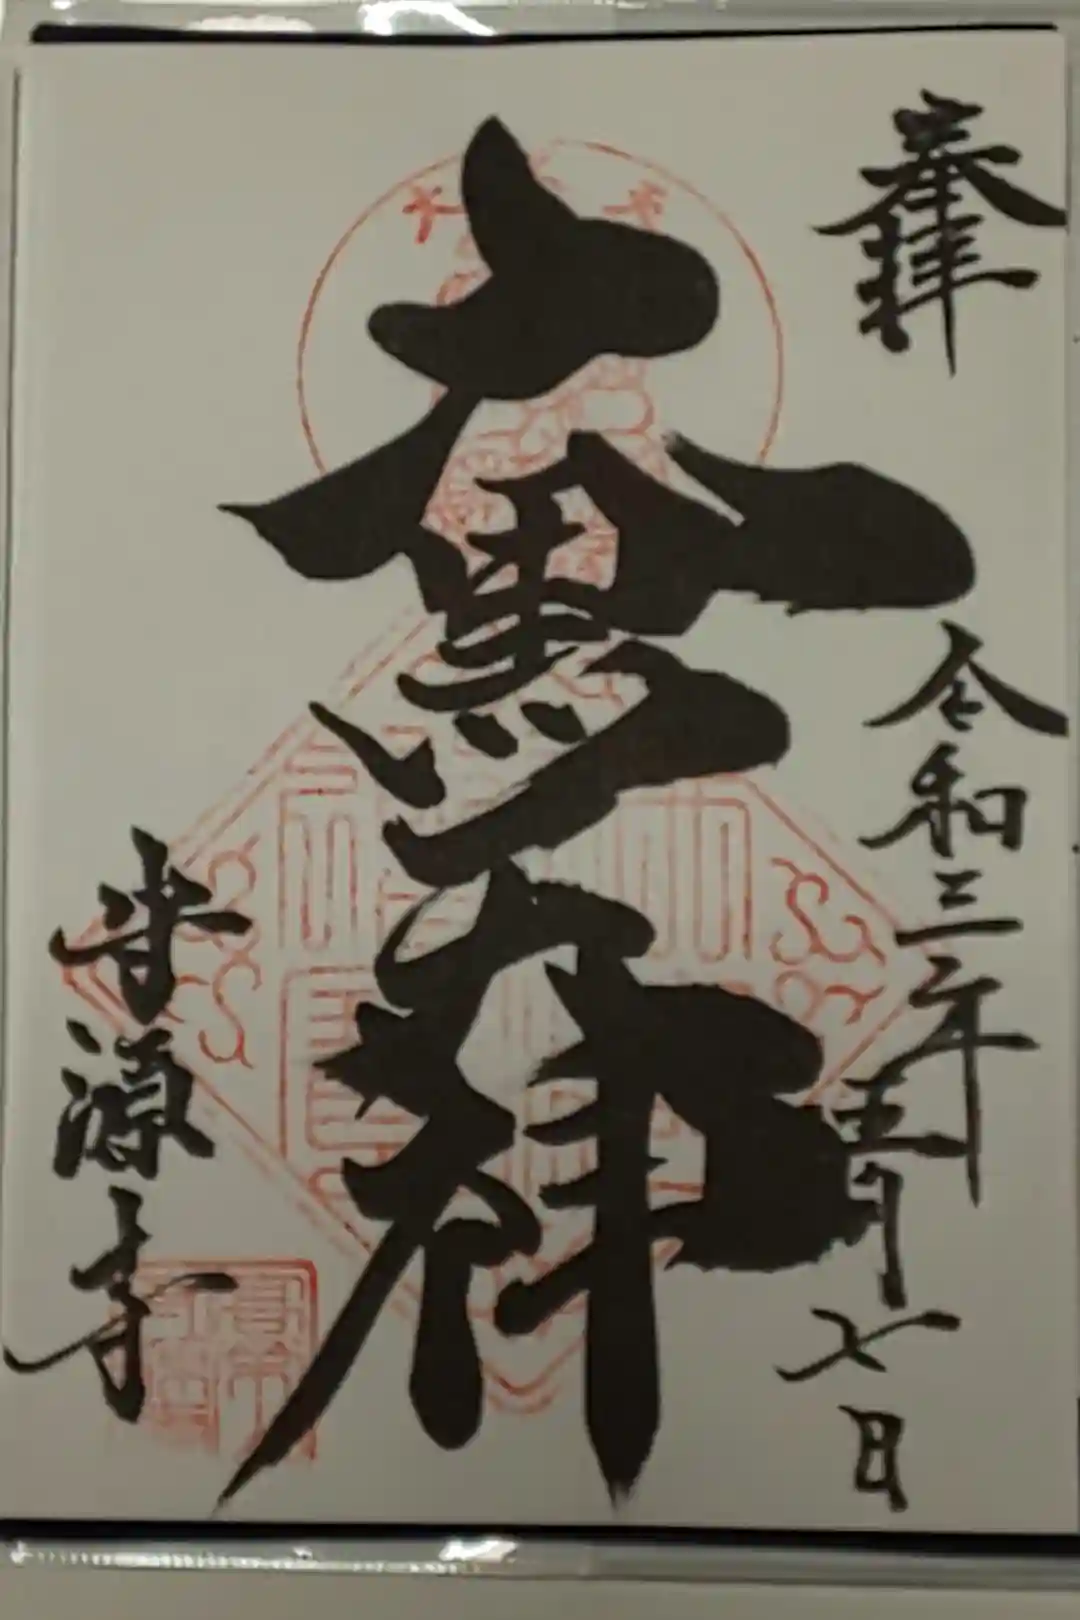 奉拝
令和三年五月七日
大黒天神
源寺